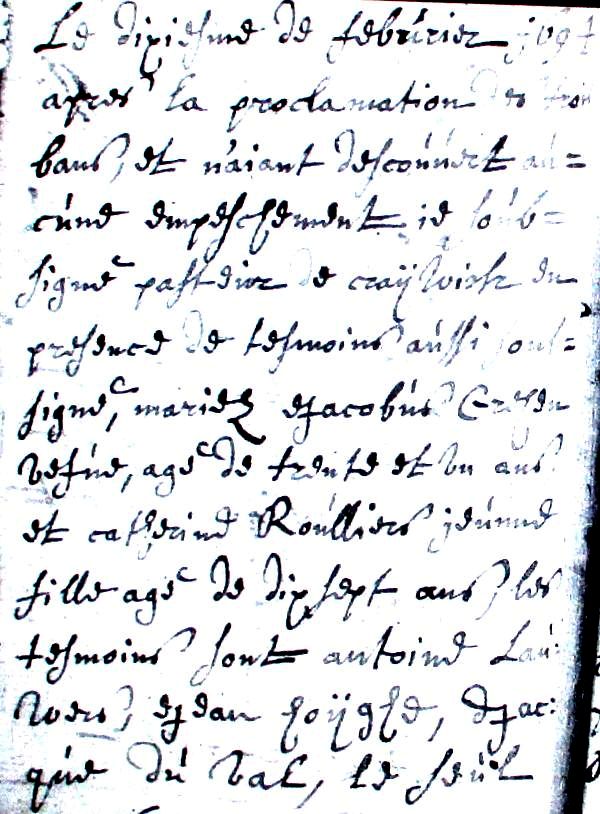 Le dixiesme de febvrier 1694
apres la proclamation des trois
bans, et n'aiant descouvert au=
cune empeschement ie soub=
signé pasteur de craywick en
presence de tesmoins aussi soub=
signé, mariez et Jacobus
vefue, agé de trente et un ans
et catherine Roulliers jeunne
fille agé de dix sept ans, les
tesmoins sont antoine Lau:
wers, et Jean hoÿghe, et Jac:
que du val, le seul